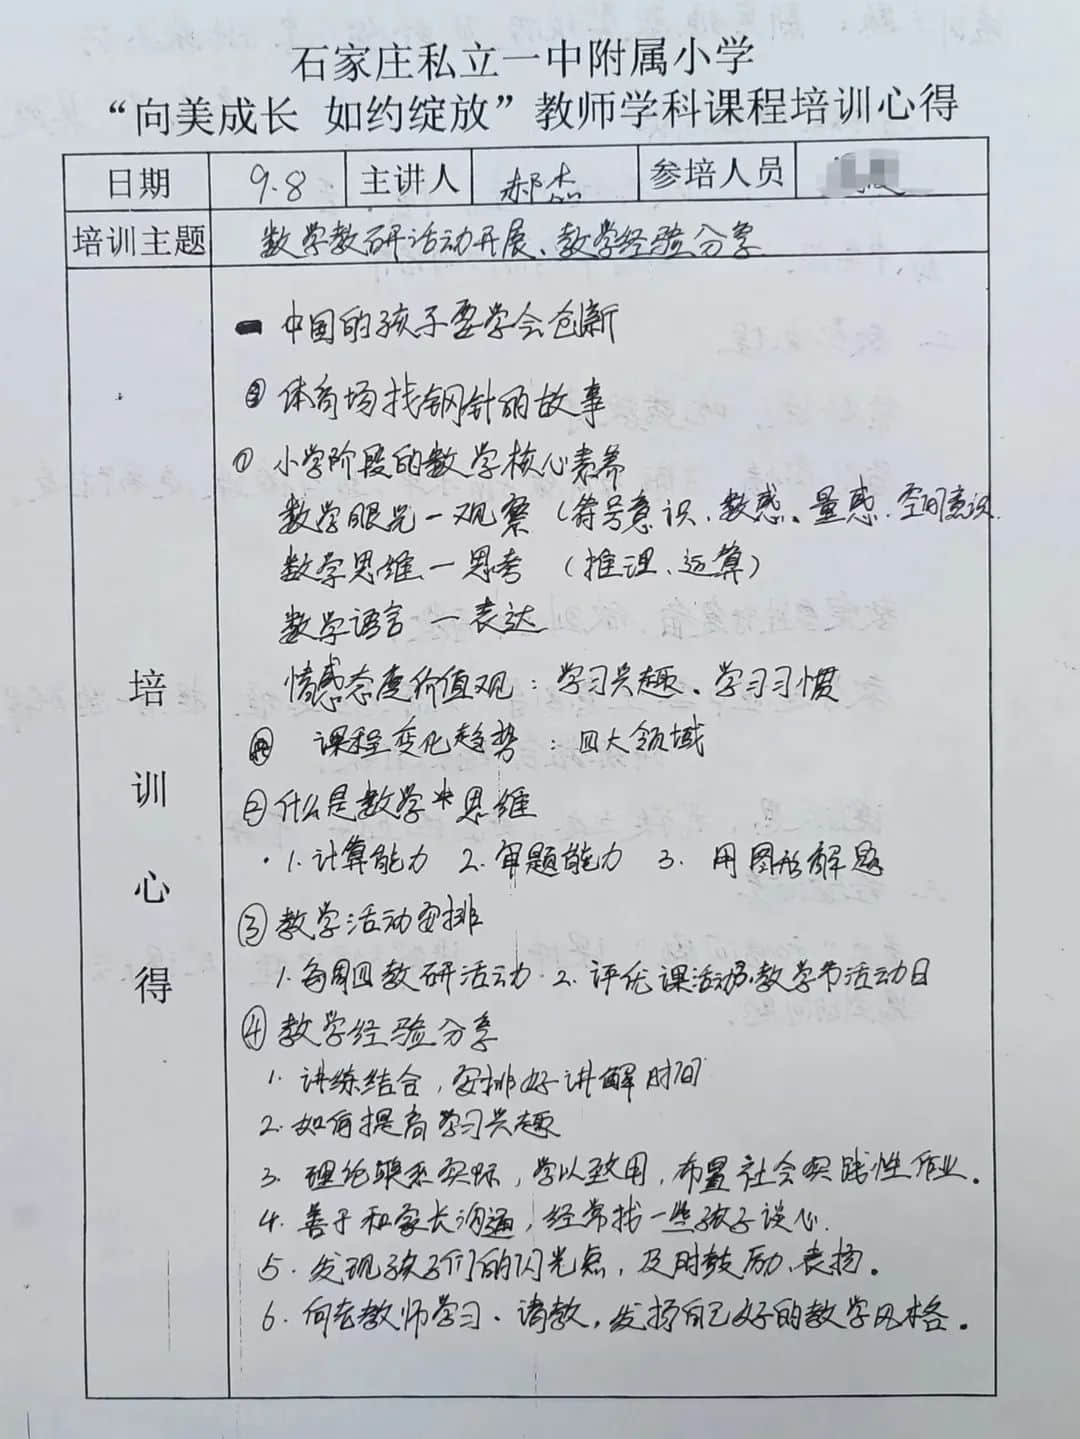 石家庄私立一中附属小学
“向美成长 如约绽放”教师学科课程培训心得
日期 9.8 主讲人 郝杰 参培人员
培训主题 数学教研活动开展、教学经验分享
培训心得
中国的孩子要学会创新
体育场找钢针的故事
① 小学阶段的数学核心素养
数学眼光—观察（符号意识、数感、量感、空间意识
数学思维—思考（推理、运算）
数学语言—表达
情感态度价值观：学习兴趣、学习习惯
课程变化趋势：四大领域
② 什么是数学思维
1. 计算能力 2. 审题能力 3. 用图形解题
③ 教学活动安排
1. 每周四教研活动 2. 评优课活动 3. 数学节活动日
④ 教学经验分享
1. 讲练结合，安排好讲解时间
2. 如何提高学习兴趣
3. 理论联系实际，学以致用，布置社会实践性作业。
4. 善于和家长沟通，经常找一些孩子谈心.
5. 发现孩子们的闪光点，及时鼓励、表扬。
6. 向老教师学习、请教，发扬自己好的教学风格。